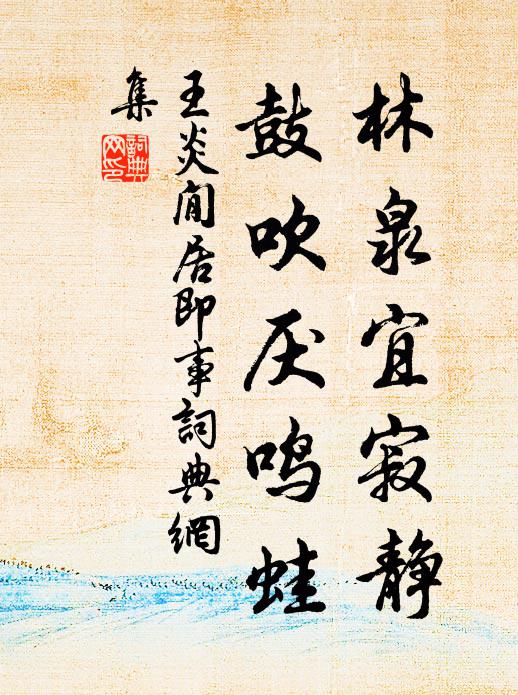 林泉宜寂静
鼓吹厌鸣蛙
王炎闲居即事詞典網
集
詞典网印